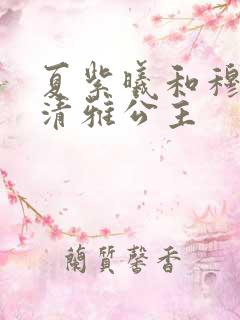 夏紫曦和穆
清雅公主
蘭質馨香